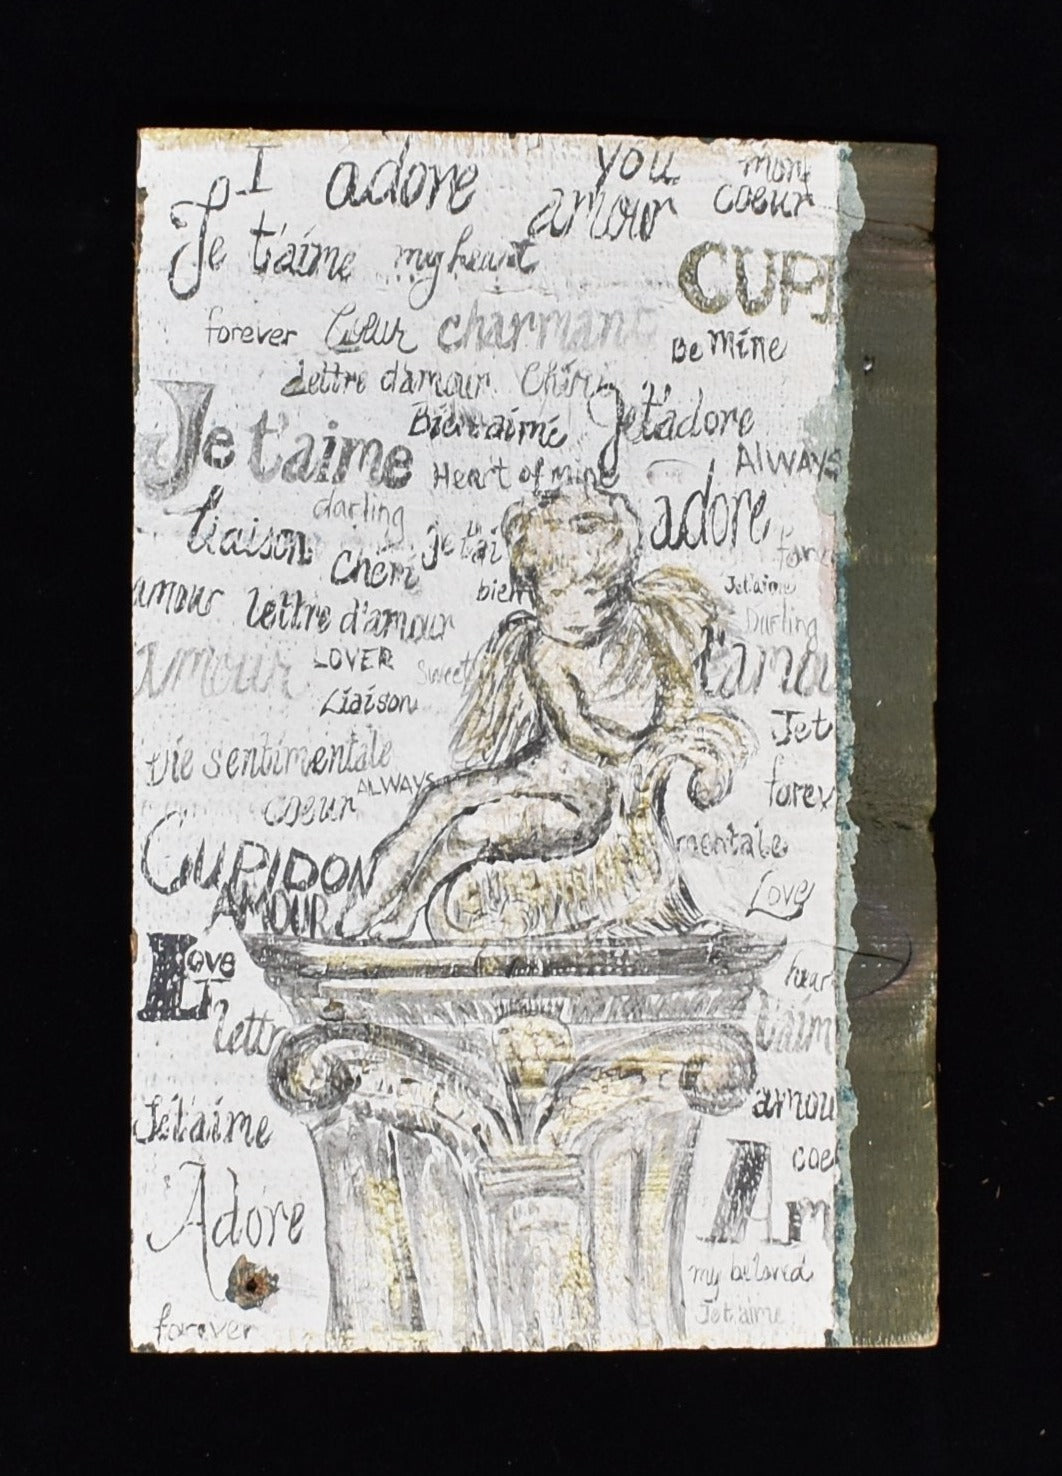 I adore you mon
amour coeur
Je t'aime my heart
CUPI
forever Coeur charmant
Be Mine
Lettre d'amour Chéri
Bien-aimé Jet'adore
Je t'aime Heart of mine ALWAYS
darling adore
liaison Je t'ai
Chéri
bien Jet'aime
amour lettre d'amour Darling
amour LOVER Sweet t'amou
Liaison
Jet
vie sentimentale
ALWAYS forev
coeur
mentale
CUPIDON
AMOUR Love
Love
hear
lettr t'aim
Jet'aime amou
coe
Adore Am
my beloved
Jet'aime
forever